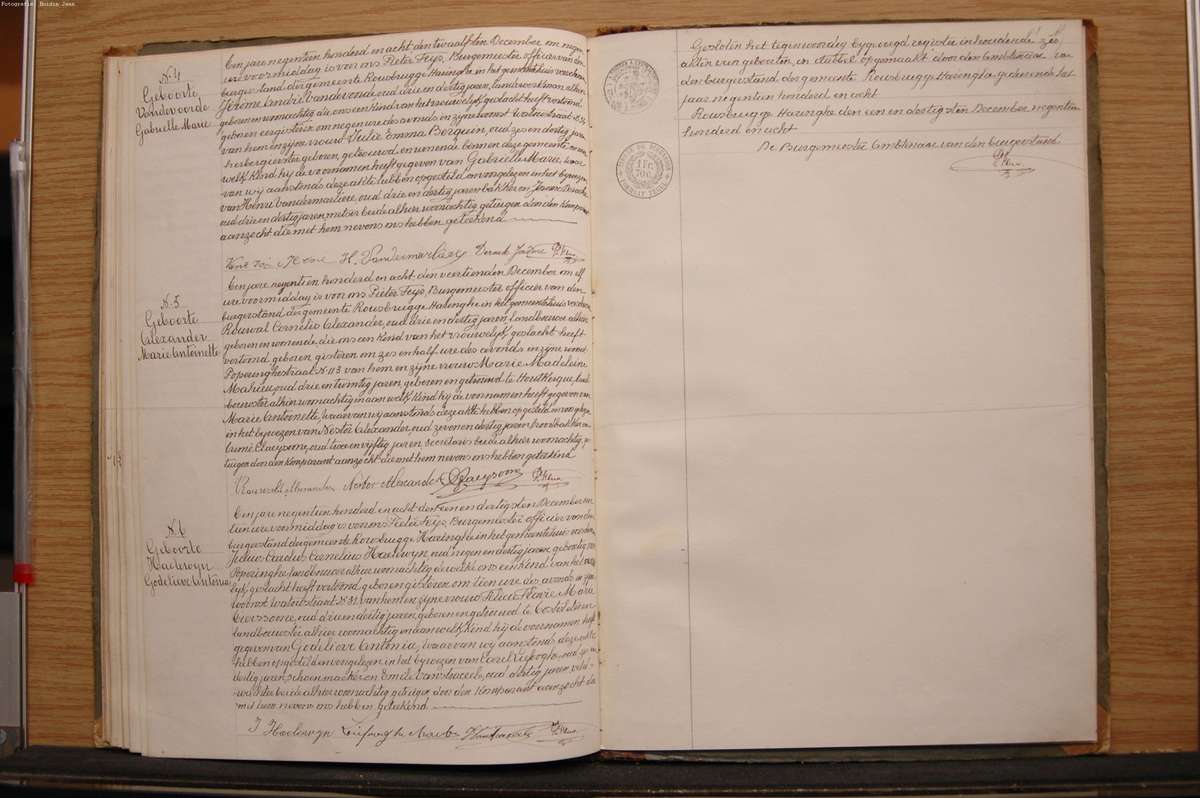 Fotografie: Boidin Jean
N. 4
Geboorte
Vandevoorde
Gabrielle Marie
Een jare negentien honderd en acht, den twaalfsten December om negen
ure voormiddag is voor ons Pieter Feys, Burgemeester officier van den
burgerstand der gemeente Rousbrugge Haringhe in het gemeentehuis verschenen
Jérôme André Vandevoorde oud drie en dertig jaren, landwerkman, alhier
geboren en woonachtig die ons een kind van het vrouwelijk geslacht heeft vertoond
geboren eergisteren om negen ure des avonds in zijne woonst Watoustraat
van hem en zijne vrouw Julie Emma Berquin, oud zes en dertig jaren
herbergierster geboren, getrouwd en wonende binnen deze gemeente en aan
welk kind hij de voornamen heeft gegeven van Gabrielle Marie, waar
van wij aanstonds deze akte hebben opgesteld en voorgelezen in het bijwezen
van Henri Vandermarliere, oud drie en dertig jaren bakker en
oud drie en dertig jaren, metser beide alhier woonachtig getuigen door den Komparant
aanzocht die met hem nevens ons hebben geteekend
N. 5
Geboorte
Alexander
Marie Antoinette
Een jare negentien honderd en acht, den veertienden December om elf
ure voormiddag is voor ons Pieter Feys, Burgemeester officier van den
burgerstand der gemeente Rousbrugge Haringhe in het gemeentehuis verschenen
Cornelis Alexander, oud drie en dertig jaren, landbouwer alhier
geboren en wonende, die ons een kind van het vrouwelijk geslacht heeft
vertoond geboren gisteren om zes en half ure des avonds in zijne woonst
Poperinghestraat N. 113 van hem en zijne vrouw Marie Madeleine
Mahieu, oud drie en twintig jaren, geboren en getrouwd te Houtkerque, land
bouwster alhier woonachtig en aan welk kind hij de voornamen heeft gegeven van
Marie Antoinette, waarvan wij aanstonds deze akte hebben opgesteld en voorgelezen
in het bijwezen van Nestor Alexander, oud zeven en dertig jaren broodbakker en
Claeysoone, oud twee en vijftig jaren, secretaris beide alhier woonachtig, ge
tuigen door den Komparant aanzocht die met hem nevens ons hebben geteekend
Nestor Alexander Claeysoone
N. 6
Geboorte
Haelewyn
Godelieve Antonia
Een jare negentien honderd en acht den een en dertigsten December om
tien ure voormiddag is voor ons Pieter Feys, Burgemeester officier van den
burgerstand der gemeente Rousbrugge Haringhe in het gemeentehuis verschenen
Cornelius Haelewyn, oud negen en dertig jaren, geboortig van
Poperinghe landbouwer alhier woonachtig de welke ons een kind van het vrouwe
lijk geslacht heeft vertoond geboren gisteren om tien ure des avonds in zijne
woonst Watoustraat N. 31, van hem en zijne vrouw Marie
oud drie en dertig jaren, geboren en getrouwd te Oostvleteren
landbouwster alhier woonachtig en aan welk kind hij de voornamen heeft
gegeven van Godelieve Antonia, waarvan wij aanstonds deze akte
hebben opgesteld en voorgelezen in het bijwezen van
dertig jaren, schoenmaker en Emile Vanstraceele, oud dertig jaren, veld
wachter beide alhier woonachtig getuigen door den Komparant aanzocht die
met hem nevens ons hebben geteekend
J. Haelewyn
Gesloten het tegenwoordig bygevoegd register inhoudende zes
akten van geboorten, in dubbel opgemaakt door den Ambtenaar van
den burgerstand der gemeente Rousbrugge Haringhe gedurende het
jaar negentien honderd en acht
Rousbrugge Haringhe den een en dertigsten December negentien
honderd en acht
De Burgemeester Ambtenaar van den burgerstand